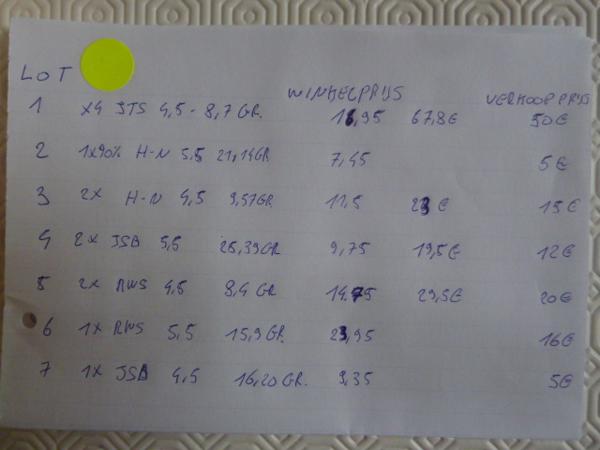 LOT
WINKELPRIJS VERKOOPPRIJS
1 x4 JTS 4,5 - 8,7 GR. 16,95 67,8€ 50€
2 1x90% H-N 5,5 21,14GR 7,45 5€
3 2x H-N 4,5 9,57GR 11,5 23€ 15€
4 2x JSB 5,5 25,39GR 9,75 19,5€ 12€
5 2x RWS 4,5 8,4 GR 14,75 29,5€ 20€
6 1x RWS 5,5 15,9 GR. 23,95 16€
7 1x JSB 4,5 16,20 GR. 9,35 5€